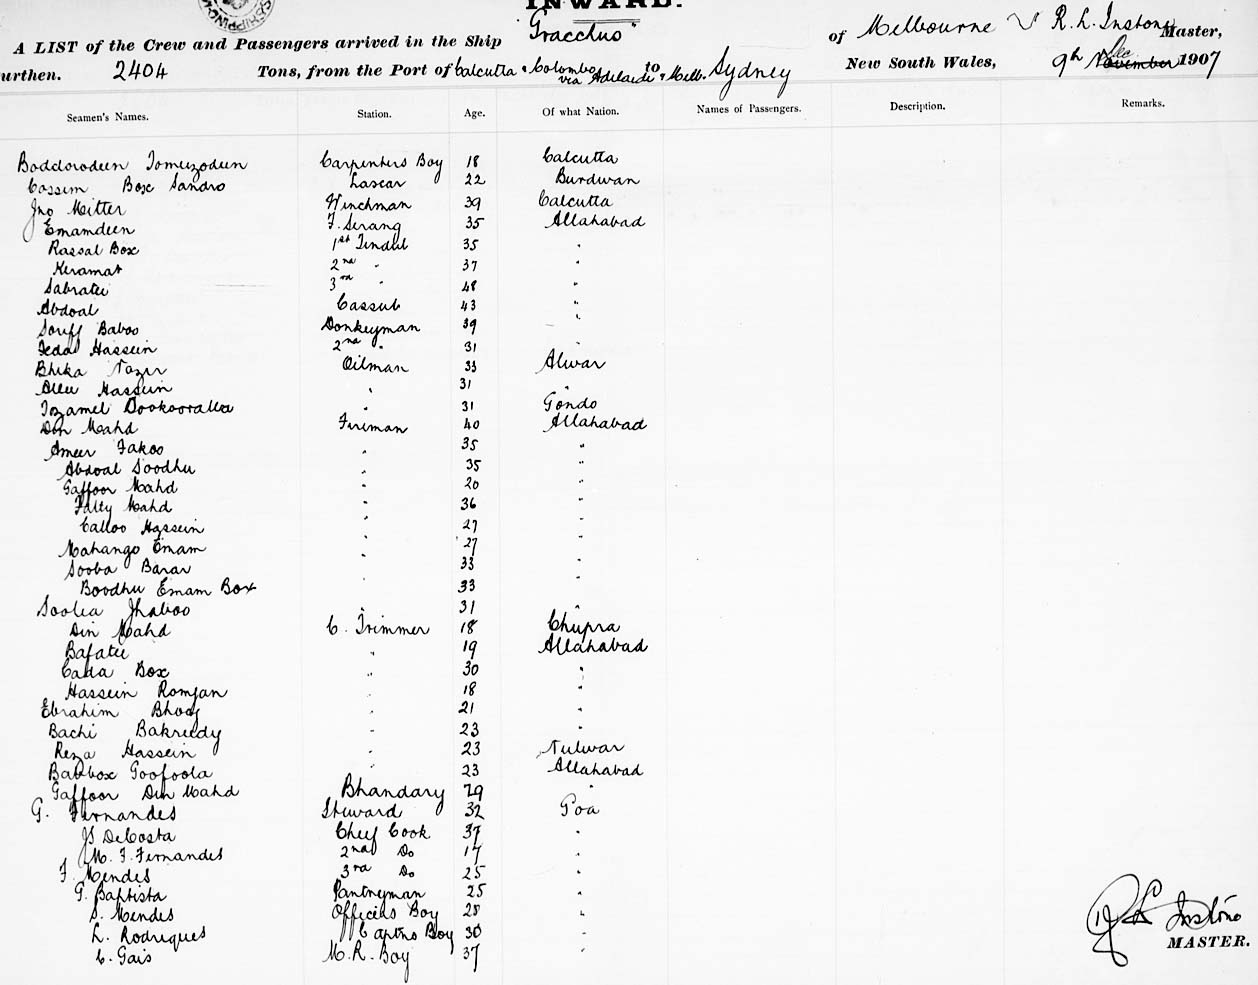 INWARD.
SHIPPING
A LIST of the Crew and Passengers arrived in the Ship "Gracchus" of Melbourne R. L. Instone Master,
urthen. 2404 Tons, from the Port of Calcutta & Colombo via Adelaide & Melb. to Sydney New South Wales, 9th Dec November 1907
Seamen's Names. Station. Age. Of what Nation. Names of Passengers. Description. Remarks.
Carpenters Boy 18 Calcutta
Cossim Box Sandro Lascar 22 Burdwan
Jno Mitter Winchman 39 Calcutta
Emamdeen F. Serang 35 Allahabad
Rassal Box 1st Tindal 35 "
Keramat 2nd " 37 "
Sabratee 3rd " 48 "
Abdoal Cassub 43 "
Soriff Baboo Donkeyman 39 "
Fedal Hassein 2nd " 31 "
Bhika Nazir Oilman 33 Alwar
Allee Hassein " 31 "
Tozamel Dookooralla " 31 Gondo
Din Mahd Fireman 40 Allahabad
Ameer Fakoo " 35 "
Abdoal Soodhu " 35 "
Gaffoor Mahd " 20 "
Fatty Mahd " 36 "
Calloo Hassein " 27 "
Mahango Emam " 27 "
Sooba Barar " 33 "
Boodhu Emam Box " 33 "
Soolea Jhaboo " 31 "
Din Mahd C. Trimmer 18 Chupra
Bafatee " 19 Allahabad
Cada Box " 30 "
Hassein Romjan " 18 "
Ebrahim " 21 "
Bachi Bakreedy " 23 "
Reza Hassein " 23 Nulwar
Babbox Goofoola " 23 Allahabad
Gaffoor Din Mahd Bhandary 29 "
G. Fernandes Steward 32 Goa
Js DeCosta Chief Cook 37 "
M. F. Fernandes 2nd Do 17 "
F. Mendes 3rd Do 25 "
G. Baptista Pantryman 25 "
S. Mendes Officers Boy 28 "
L. Rodrigues Captns Boy 30 "
C. Gais M. R. Boy 37 "
R L Instone
MASTER.